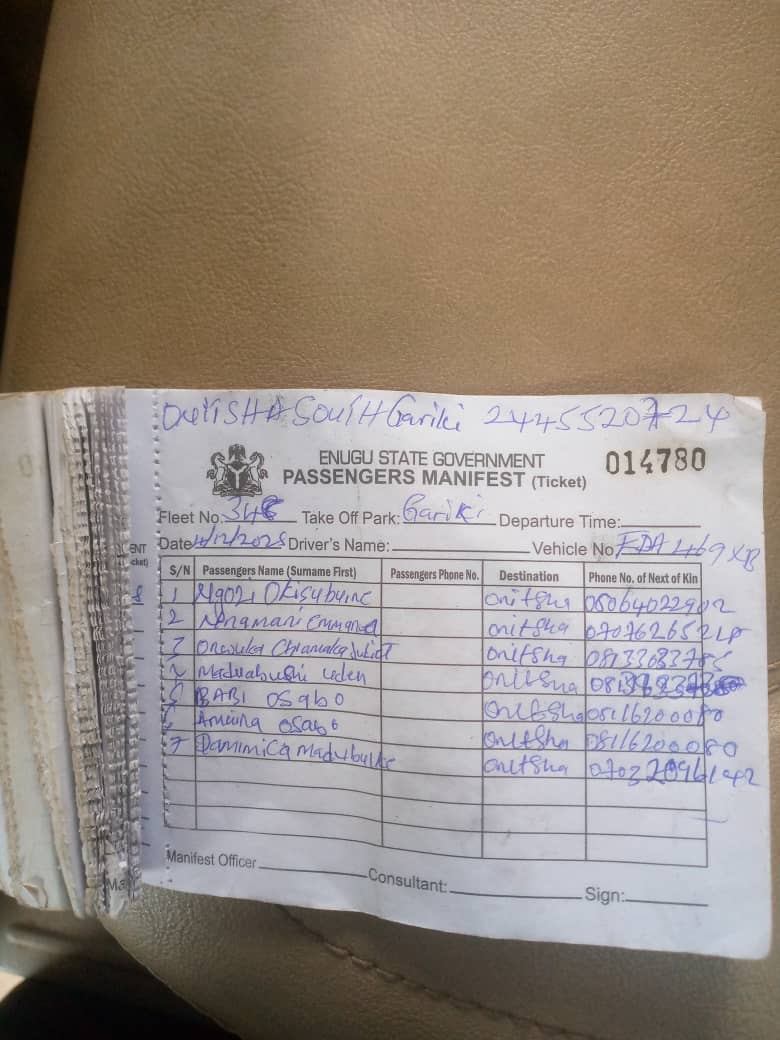 ONITSHA SOUTH Gariki 2445520724
ENUGU STATE GOVERNMENT
PASSENGERS MANIFEST (Ticket)
014780
Fleet No. 348 Take Off Park: Gariki Departure Time:
Date 4/12/2025 Driver's Name: Vehicle No EDA 469 XB
S/N Passengers Name (Surname First) Passengers Phone No. Destination Phone No. of Next of Kin
1 Ngozi Onitsha 08064022902
2 Emmanuel Onitsha
3 Chiamaka Juliet Onitsha 08133683785
Onitsha
BABI OSABO Onitsha 08116200080
Amina OSABO Onitsha 08116200080
7 Onitsha 07032096142
Manifest Officer Consultant: Sign: